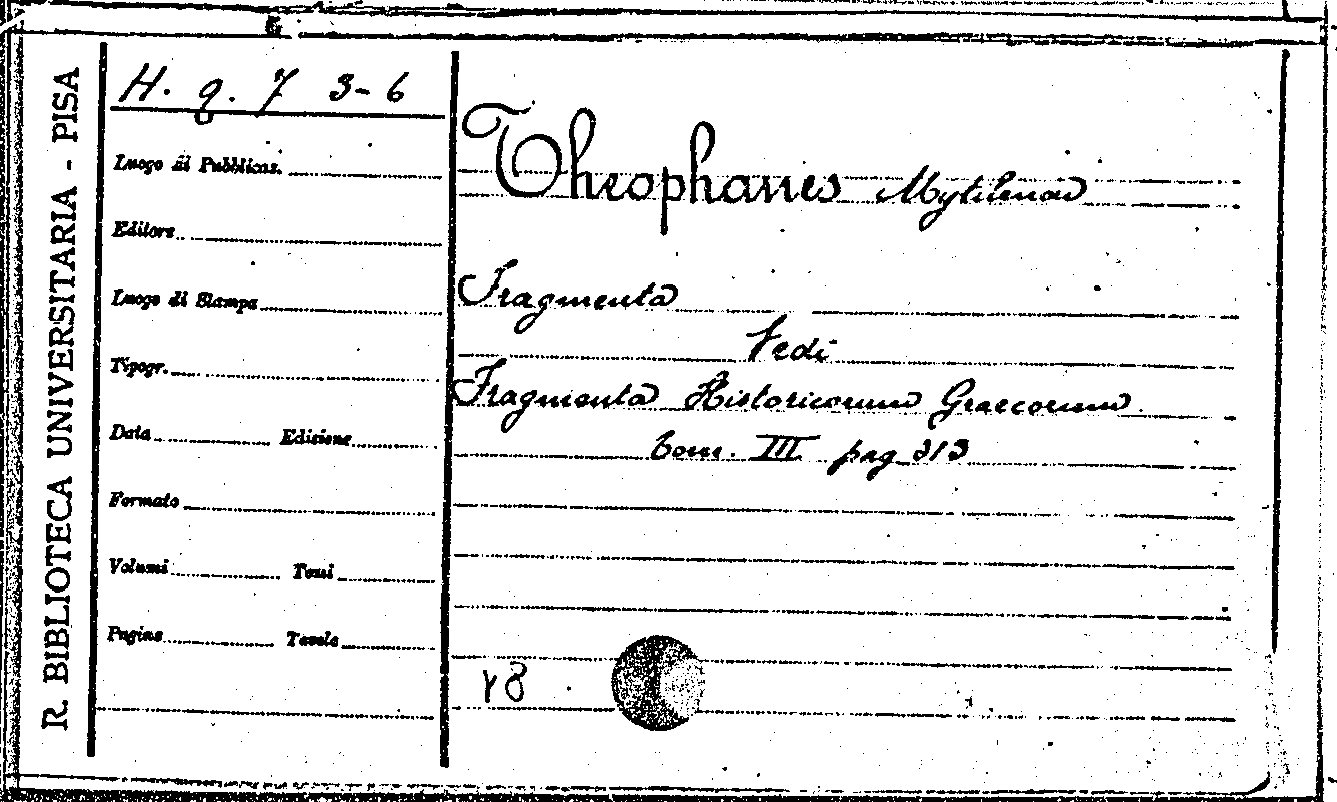 R. BIBLIOTECA UNIVERSITARIA - PISA
H. q. 7 3-6
Luogo di Pubblicas.
Editore
Luogo di Stampa
Tipogr.
Data Edizione
Formato
Volumi Tomi
Pagine Tavole
Theophanes Mytilenaeus
Fragmenta
Vedi
Fragmenta Historicorum Graecorum
tom. III pag 313